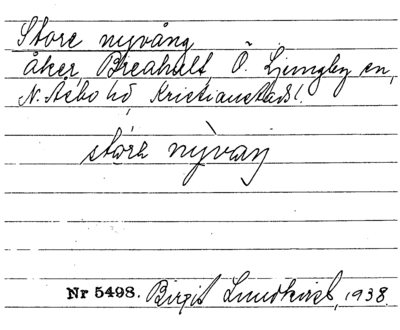 Store nyvång
åker, Breahult, Ö. Ljungby sn,
N. Åsbo hd, Kristianstads l.
stóra nỳvaŋ
Nr 5498. Birgit Lundkvist, 1938.